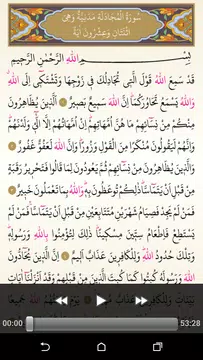 سُورَةُ المُجَادلَةِ مَدَنِيَّةٌ وَهِيَ
اثْنَتَانِ وَعِشْرُونَ آيَةً
بِسْمِ اللهِ الرَّحْمٰنِ الرَّحِيمِ
قَدْ سَمِعَ اللهُ قَوْلَ الَّتِي تُجَادِلُكَ فِي زَوْجِهَا وَتَشْتَكِي إِلَى اللهِ
وَاللهُ يَسْمَعُ تَحَاوُرَكُمَا إِنَّ اللهَ سَمِيعٌ بَصِيرٌ ۝ الَّذِينَ يُظَاهِرُونَ
مِنْكُمْ مِنْ نِسَائِهِمْ مَا هُنَّ أُمَّهَاتِهِمْ إِنْ أُمَّهَاتُهُمْ إِلَّا اللَّائِي وَلَدْنَهُمْ
وَإِنَّهُمْ لَيَقُولُونَ مُنْكَرًا مِنَ الْقَوْلِ وَزُورًا وَإِنَّ اللهَ لَعَفُوٌّ غَفُورٌ ۝
وَالَّذِينَ يُظَاهِرُونَ مِنْ نِسَائِهِمْ ثُمَّ يَعُودُونَ لِمَا قَالُوا فَتَحْرِيرُ رَقَبَةٍ
مِنْ قَبْلِ أَنْ يَتَمَاسَّا ذٰلِكُمْ تُوعَظُونَ بِهِ وَاللهُ بِمَا تَعْمَلُونَ خَبِيرٌ ۝
فَمَنْ لَمْ يَجِدْ فَصِيَامُ شَهْرَيْنِ مُتَتَابِعَيْنِ مِنْ قَبْلِ أَنْ يَتَمَاسَّا فَمَنْ لَمْ
يَسْتَطِعْ فَإِطْعَامُ سِتِّينَ مِسْكِينًا ذٰلِكَ لِتُؤْمِنُوا بِاللهِ وَرَسُولِهِ
وَتِلْكَ حُدُودُ اللهِ وَلِلْكَافِرِينَ عَذَابٌ أَلِيمٌ ۝ إِنَّ الَّذِينَ يُحَادُّونَ
اللهَ وَرَسُولَهُ كُبِتُوا كَمَا كُبِتَ الَّذِينَ مِنْ قَبْلِهِمْ وَقَدْ أَنْزَلْنَا آيَاتٍ
بَيِّنَاتٍ وَلِلْكَافِرِينَ عَذَابٌ مُهِينٌ ۝ يَوْمَ يَبْعَثُهُمُ اللهُ جَمِيعًا
00:00
53:28